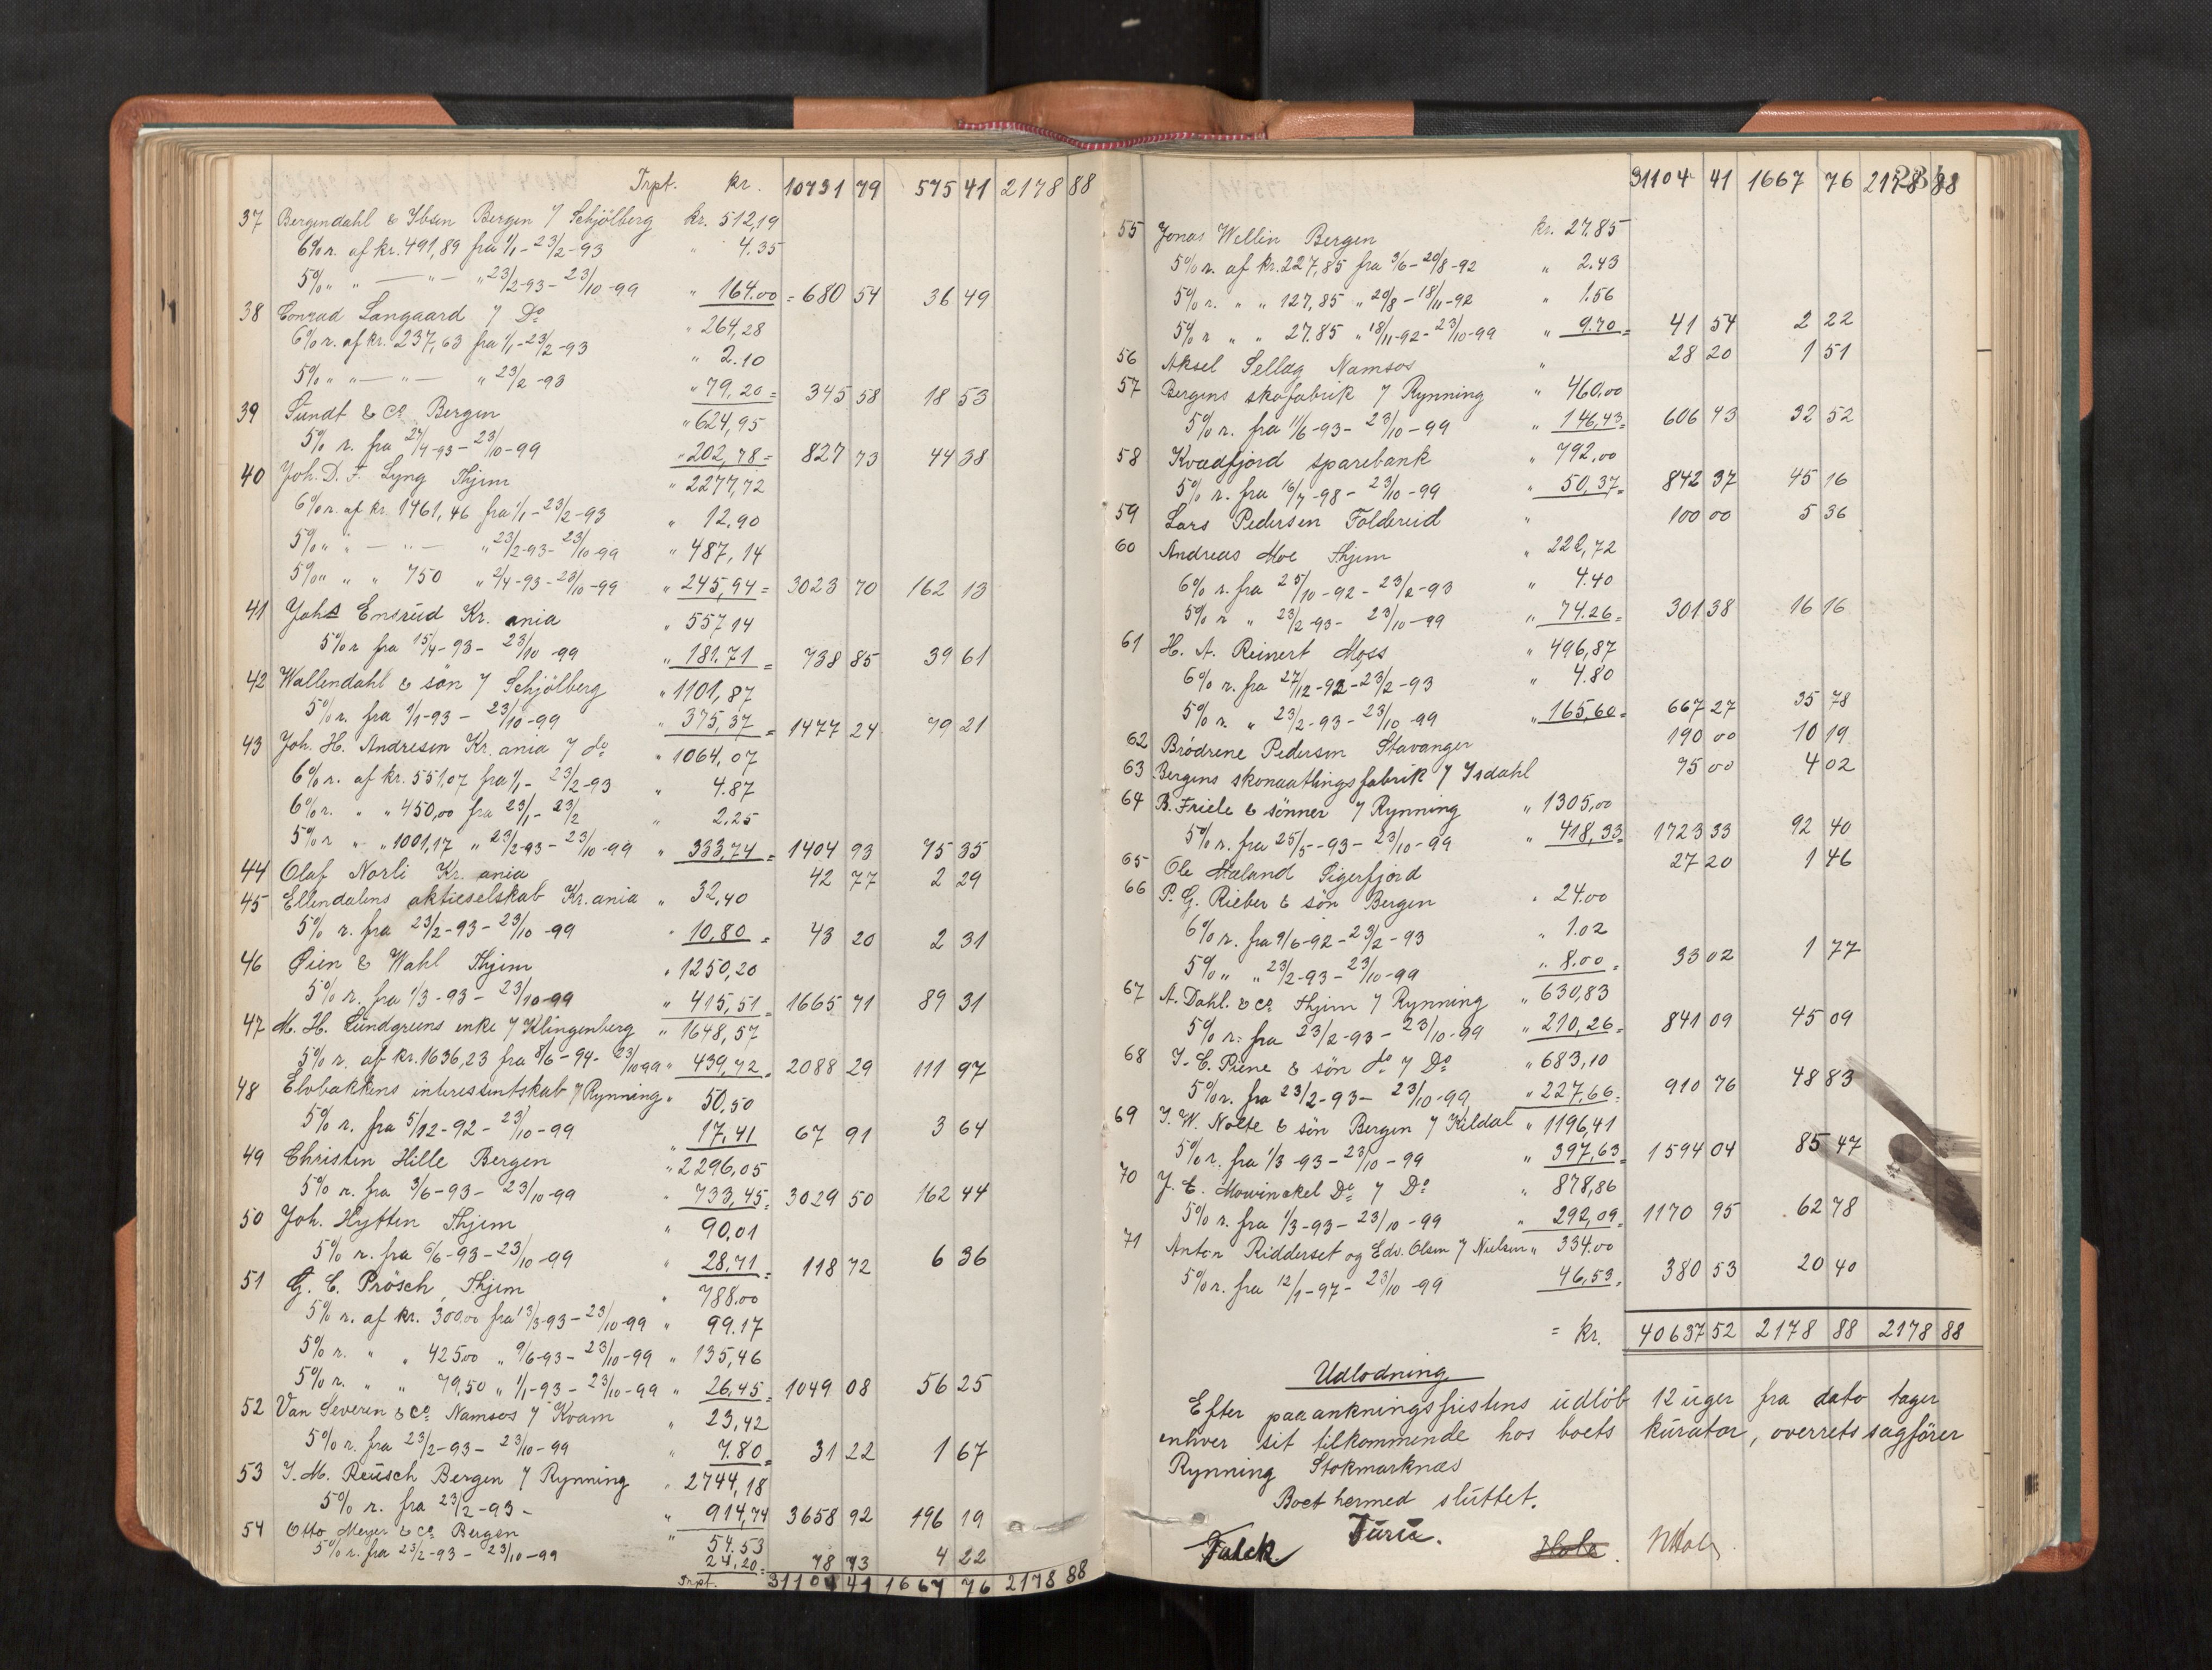 Trpt. kr. 10731 79 575 41 2178 88
37 Bergendahl & Ibsen Bergen 7 Schjölberg kr. 512,19
6% r. af kr. 491,89 fra 1/1 - 23/2 - 93 " 4.35
5% " " — " — " 23/2-93 - 23/10 - 99 " 164.00 = 680 54 36 49
38 Conrad Langaard 7 Do " 264,28
6% r. af kr. 237,63 fra 1/1 - 23/2 - 93 " 2.10
5% " " — " — " 23/2 - 93 " 79,20 = 345 58 18 53
39 Sundt & Co Bergen " 624,95
5% r. fra 27/4-93 - 23/10 - 99 " 202,78 = 827 73 44 38
40 Joh. D. F. Lyng Thjem " 2277,72
6% r. af kr. 1461,46 fra 1/1 - 23/2 - 93 " 12,90
5% " " — " — " 23/2-93 - 23/10-99 " 487,14
5% " " " 750 " 2/4-93 - 23/10-99 " 245,94 = 3023 70 162 13
41 Johs Ensrud Kr. ania " 557 14
5% r fra 15/4-93 - 23/10 - 99 " 181.71 = 738 85 39 61
42 Wallendahl & søn 7 Schjölberg " 1101,87
5% r. fra 1/1-93 - 23/10-99 " 375,37 = 1477 24 79 21
43 Joh. H. Andresen Kr. ania 7 do " 1064,07
6% r. af kr. 551,07 fra 1/1 - 23/2-93 " 4.87
6% r. " " 450,00 fra 23/1 - 23/2 " 2.25
5% r " " 1001,17 " 23/2-93 - 23/10-99 " 333,74 = 1404 93 75 35
44 Olaf Norli Kr. ania 42 77 2 29
45 Ellendalens aktieselskab Kr. ania " 32,40
5% r. fra 23/2-93 - 23/10 - 99 " 10,80 = 43 20 2 31
46 Øien & Wahl Thjem " 1250,20
5% r. fra 1/3-93 - 23/10-99 " 415,51 = 1665 71 89 31
47 M. H. Lundgreens enke 7 Klingenberg " 1648,57
5% r. af kr. 1636,23 fra 8/6-94 - 23/10 99 " 439,72 = 2088 29 111 97
48 Elvbakkens interessentskab 7 Rynning " 50,50
5% r. fra 5/12-92 - 23/10-99 " 17,41 67 91 3 64
49 Christen Hille Bergen " 2296,05
5% r. fra 3/6-93 - 23/10-99 " 733,45 = 3029 50 162 44
50 Joh. Hytten Thjem " 90,01
5% r. fra 6/6-93 - 23/10-99 " 28,71 = 118 72 6 36
51 G. C. Prösch, Thjem " 788.00
5% r. af kr. 300,00 fra 13/3-93 - 23/10-99 " 99.17
5% r. " " 425,00 " 9/6-93 - 23/10-99 " 135,46
5% r. " " 79,50 " 1/1-93 - 23/10-99 " 26,45 = 1049 08 56 25
52 Van Severen & Co Namsos 7 Kvam " 23,42
5% r. fra 23/2-93 - 23/10-99 " 7.80 = 31 22 1 67
53 I. M. Reusch Bergen 7 Rynning " 2744,18
5% r. fra 23/2-93 - " 914,74 3658 92 196 19
54 Otto Meyer & Co Bergen " 54.53
5% r. fra 23/2-93 - 23/10-99 24,20 = 78 73 4 22
Trpt. 31104 41 1667 76 2178 88
31104 41 1667 76 2178 88
55 Jonas Wellin Bergen kr. 27.85
5% r. af kr. 227,85 fra 3/6 - 20/8-92 " 2.43
5% r. " " 127,85 " 20/8 - 18/11-92 " 1.56
5% r " " 27.85 " 18/11-92 - 23/10-99 " 9.70 = 41 54 2 22
56 Aksel Sellæg Namsos " 28 20 1 51
57 Bergens skofabrik 7 Rynning " 460,00
5% r. fra 11/6-93 - 23/10-99 " 146,43 = 606 43 32 52
58 Kvædfjord sparebank " 792,00
5% r. fra 16/7-98 - 23/10-99 " 50,37 = 842 37 45 16
59 Lars Pedersen Foldereid " 100 00 5 36
60 Andreas Moe Thjem " 222,72
6% r. fra 25/10-92 - 23/2-93 " 4.40
5% r " 23/2-93 - 23/10-99 " 74.26 = 301 38 16 16
61 H. A. Reinert Moss " 496,87
6% r. fra 27/12-92 - 23/2-93 " 4.80
5% r. " 23/2-93 - 23/10-99 " 165,60 = 667 27 35 78
62 Brödrene Pedersen Stavanger 190 00 10 19
63 Bergens skonaatlingsfabrik 7 Isdahl 75 00 4 02
64 B. Friele & sönner 7 Rynning " 1305,00
5% r. fra 25/5-93 - 23/10-99 " 418,33 = 1723 33 92 40
65 Ole Mæland Sigerfjord 27 20 1 46
66 P. G. Rieber & sön Bergen " 24.00
6% r. fra 9/6-92 - 23/2-93 " 1.02
5% " " 23/2-93 - 23/10-99 " 8.00 = 33 02 1 77
67 A. Dahl. & Co Thjem 7 Rynning " 630,83
5% r. fra 23/2-93 - 23/10-99 " 210,26 = 841 09 45 09
68 I. C. Piene & sön do 7 Do " 683,10
5% r. fra 23/2-93 - 23/10-99 " 227,66 = 910 76 48 83
69 I. W. Nolte & sön Bergen 7 Kildal " 1196,41
5% r. fra 1/3-93 - 23/10-99 " 397,63 = 1594 04 85 47
70 J. E. Mowinckel Do 7 Do " 878,86
5% r. fra 1/3-93 - 23/10-99 " 292,09 = 1170 95 62 78
71 Anton Ridderset og Edv. Olsen 7 Nielsen " 334.00
5% r. fra 12/1-97 - 23/10-99 46,53 = 380 53 20 40
= kr. 40637 52 2178 88 2178 88
Udlodning
Efter paaankningsfristens udløb 12 uger fra dato tager
enhver sit tilkommende hos boets kurator, overretssagfører
Rynning Stokmarknæs
Boet hermed sluttet.
Falck Juru. Hole.